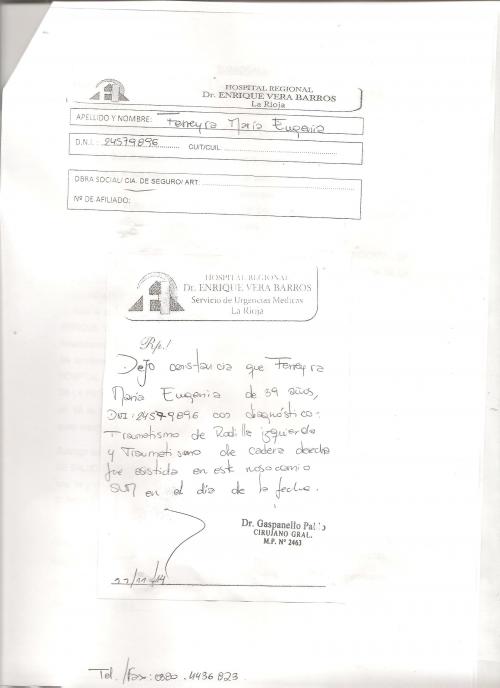 HOSPITAL REGIONAL
Dr. ENRIQUE VERA BARROS
La Rioja
APELLIDO Y NOMBRE: Ferreyra Maria Eugenia
D.N.I.: 24579896 CUIT/CUIL:
OBRA SOCIAL/ CIA. DE SEGURO/ ART:
Nº DE AFILIADO:
HOSPITAL REGIONAL
Dr. ENRIQUE VERA BARROS
Servicio de Urgencias Médicas
La Rioja
Rp.!
Dejo constancia que Ferreyra
Maria Eugenia de 39 años,
DNI: 24579896 con diagnóstico:
Traumatismo de Rodilla izquierda
y Traumatismo de cadera derecha
fue asistida en este nosocomio
en el día de la fecha.
Dr. Gaspanello Pablo
CIRUJANO GRAL.
M.P. Nº 2463
/11/14
Tel./Fax: 0380.4436823